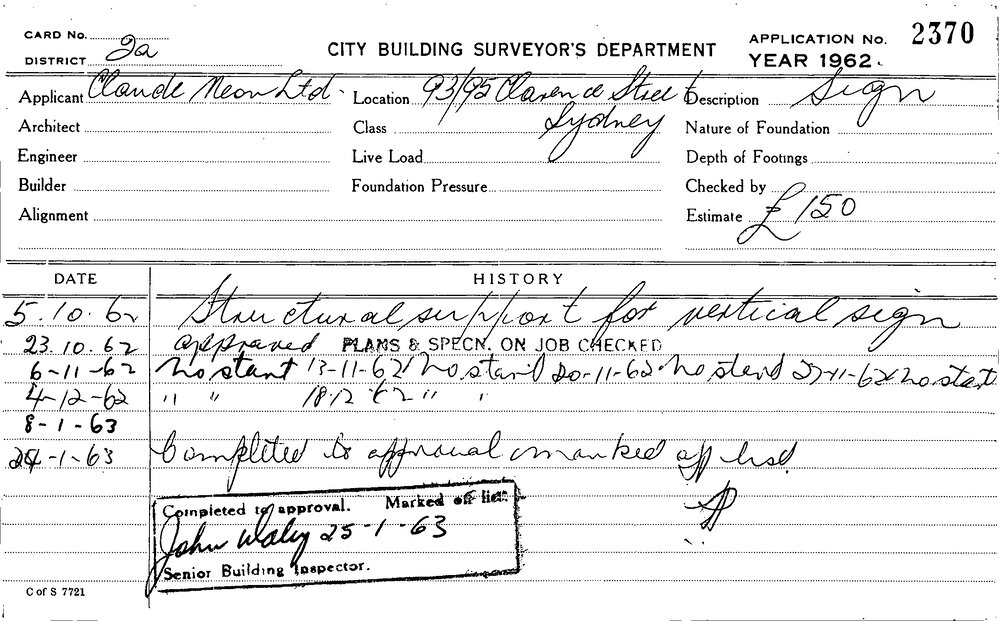 CARD No.
DISTRICT 2a
CITY BUILDING SURVEYOR'S DEPARTMENT
APPLICATION No. 2370
YEAR 1962
Applicant Claude Neon Ltd. Location 93/95 Clarence Street Description Sign
Architect Class Sydney Nature of Foundation
Engineer Live Load Depth of Footings
Builder Foundation Pressure Checked by
Alignment Estimate £150
DATE HISTORY
5.10.62 Structural support for vertical sign
23.10.62 approved PLANS & SPECN. ON JOB CHECKED
6-11-62 No start 13-11-62 No start 20-11-62 No start 27-11-62 No start
4-12-62 " " 18.12.62 " "
8-1-63
24-1-63 Completed to approval marked off list.
Completed to approval. Marked off list.
John 25-1-63
Senior Building Inspector.
C of S 7721